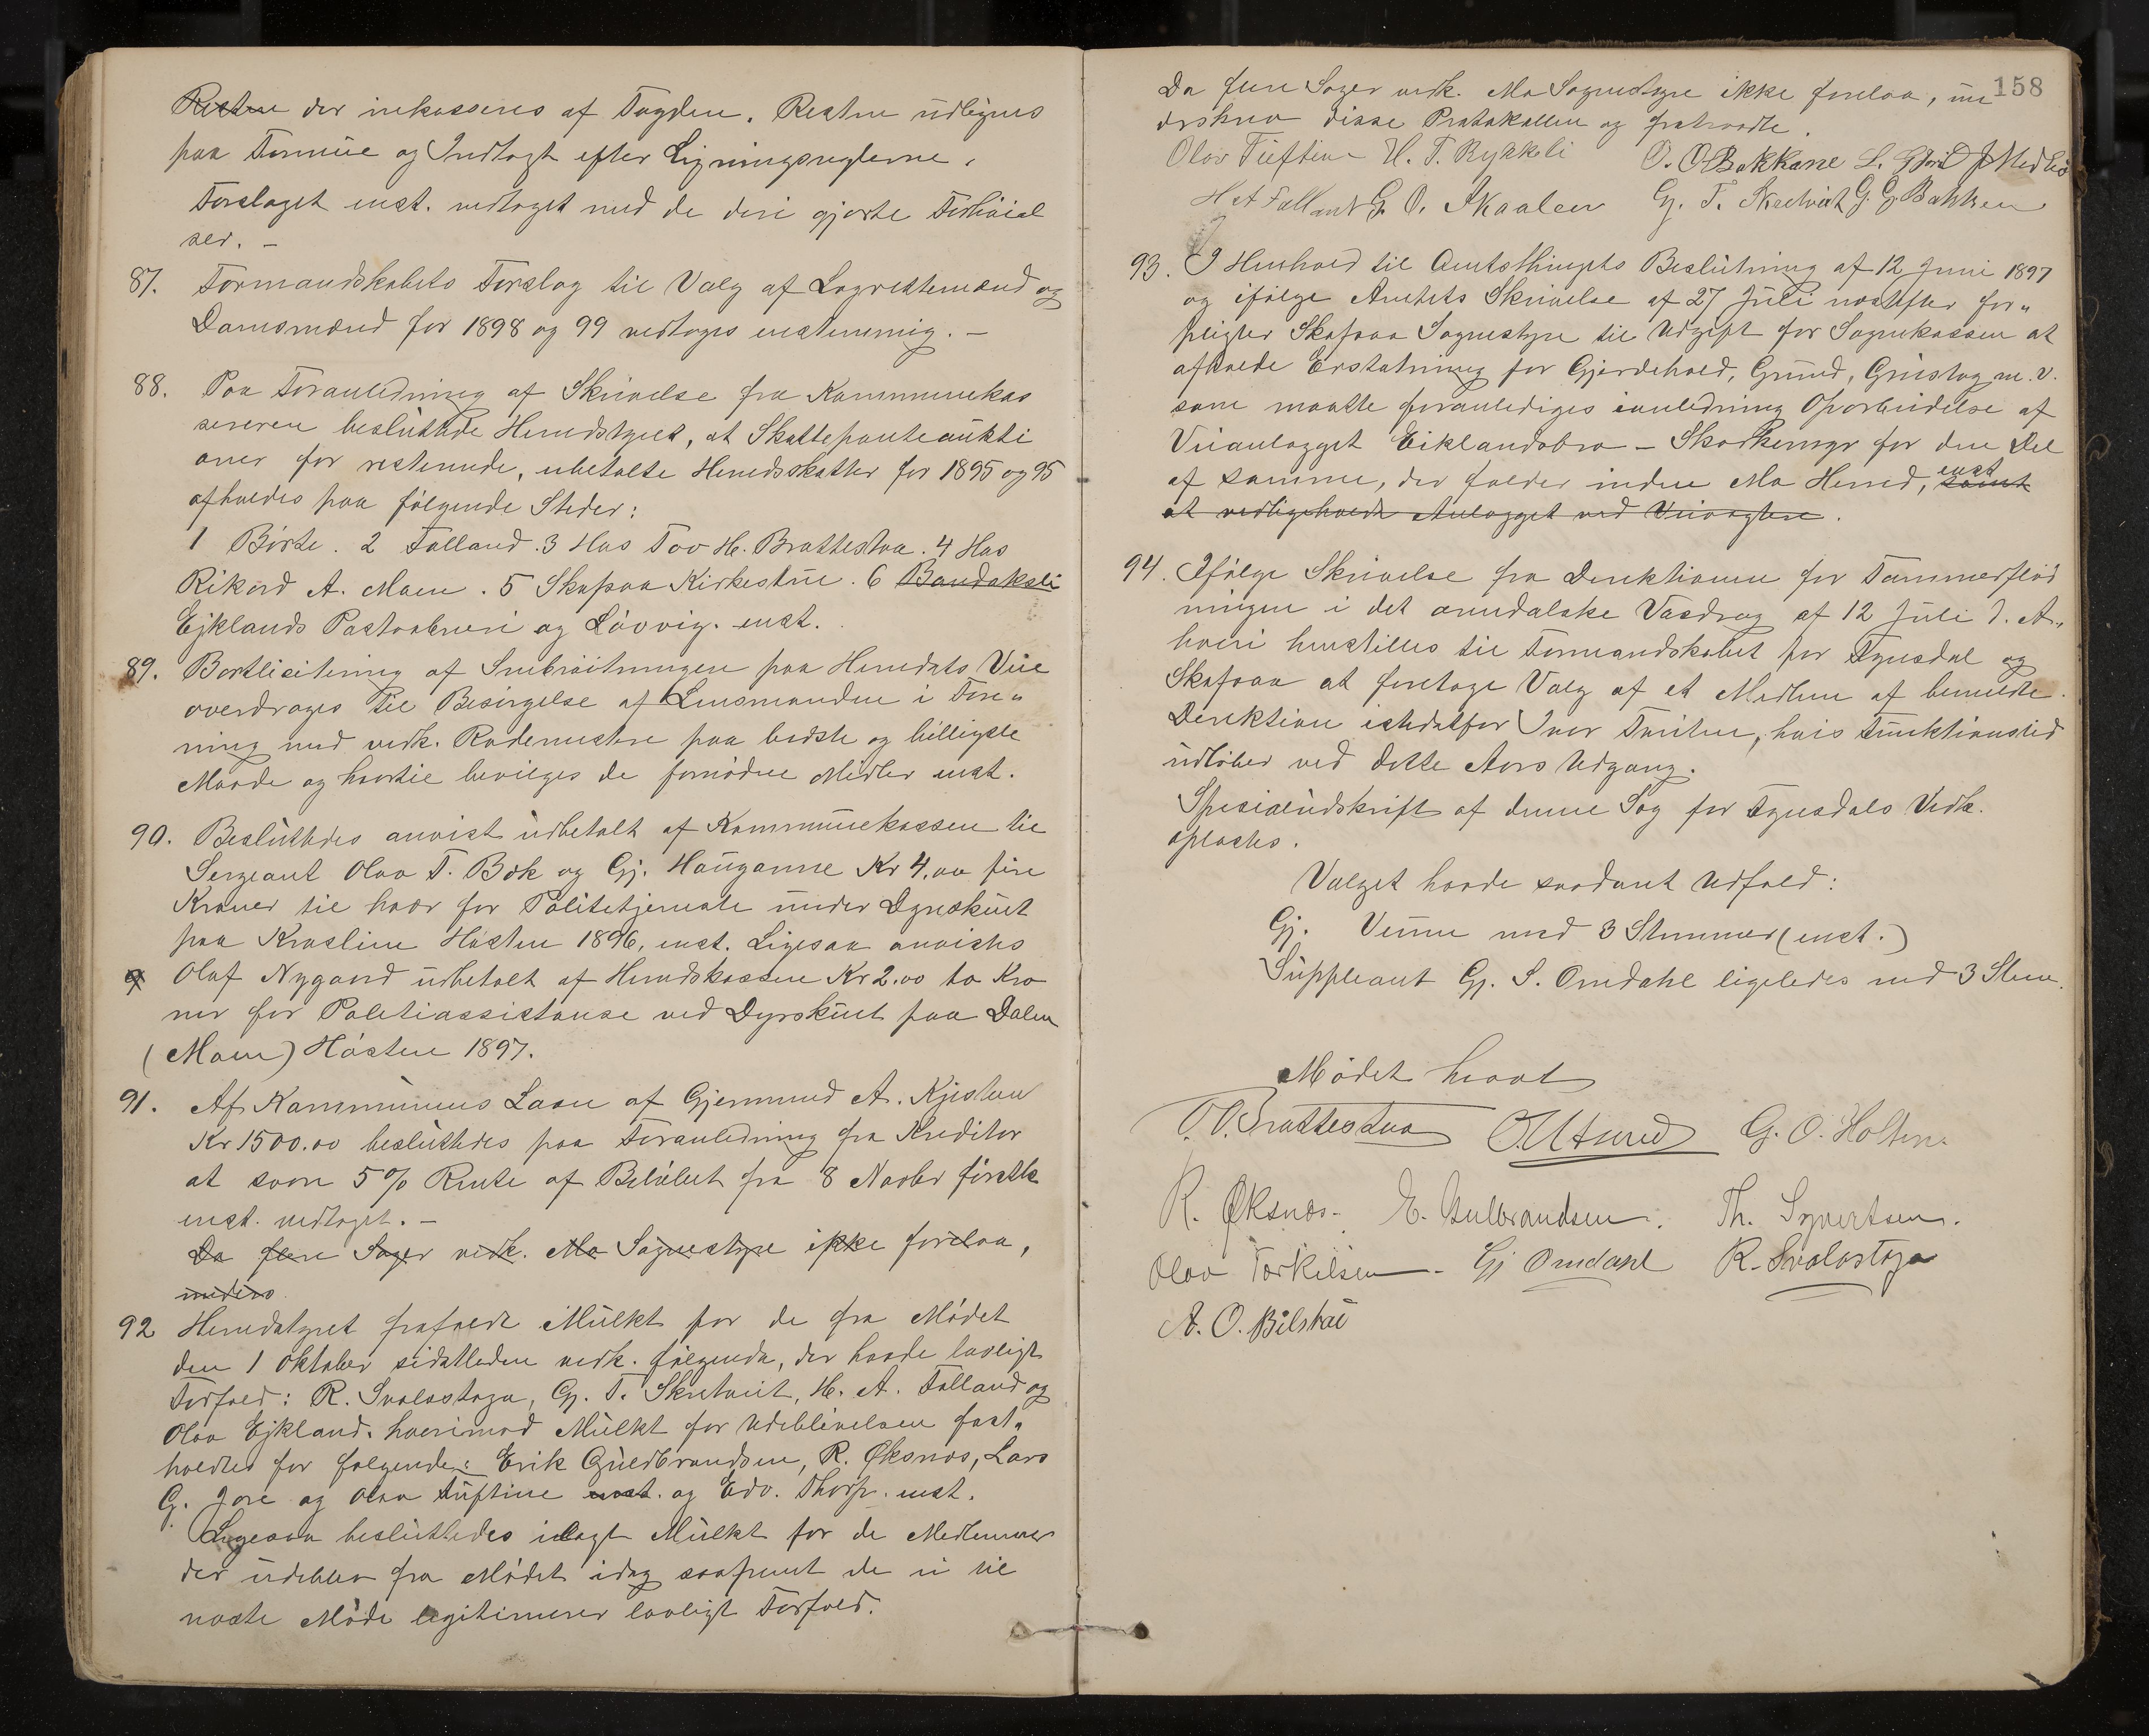 Resten der inkasseres af Fogden. Resten udlignes
paa Formue og Indtægt efter Ligningsreglerne.
Forslaget enst. vedtaget med de deri gjorte Forhøiel
ser. –
87. Formandskabets Forslag til Valg af Lagrettemænd og
Domsmænd for 1898 og 99 vedtoges enstemmig. –
88. Paa Foranledning af Skrivelse fra Kommunekas
sereren besluttede Herredstyret, at Skattepanteaukti
oner for resterende, ubetalte Herredsskatter for 1895 og 95
afholdes paa følgende Steder:
1 Børte. 2 Falland. 3 Hos Tov H. Brattestaa. 4 Hos
Rikard A. Moen. 5 Skafsaa Kirkestue. 6 Bandaksli
Ejklands Postaabneri og Løvvig. enst.
89. Bortlisitering af Snebrøitningen paa Herredets Veie
overdrages til Besørgelse af Lensmanden i Fore„
ning med vedk. Rodemestre paa bedste og billigste
Maade og hvortil bevilges de fornødne Midler enst.
90. Besluttedes anvist udbetalt af Kommunekassen til
Sergeant Olav T. Bøk og Gj. Hauganne Kr 4,00 fire
Kroner til hver for Politetjeneste under Dyrskuet
paa Høsten 1896, enst. Ligesaa anvistes
Olaf Nygaard udbetalt af Herredskassen Kr 2.00 to Kro
ner for Politiassistanse ved Dyrskuet paa Dalen
(Moen) Høsten 1897.
91. Af Kommunens Laan af Gjermund A.
Kr 1500.00 besluttedes paa Foranledning fra Kreditor
at svare 5% Rente af Beløbet fra 8 Novbr førstk
enst. vedtaget. –
Da flere Sager vedk. Mo Sognestyre ikke forelaa,
92 Herredstyret frafaldt Mulkt for de fra Mødet
den 1 Oktober sidstleden vedk. følgende, der havde lovligt
Forfald: R. Svalastoga, Gj. T. Skretveit, H. A. Falland og
Olav Ejkland. hvorimod Mulkt for Udeblivelsen fast„
holdtes for følgende: Erik Guldbrandsen, R. Øksnæs, Lars
G. Jore og Olav Tuftine enst. og Edv. Thorp. enst.
Ligesaa besluttedes ilagt Mulkt for de Medlemmer
der udeblev fra Mødet idag saafremt de ei til
næste Møde legitimerer lovligt Forfald.
158
Da flere Sager vedk. Mo Sognestyre ikke forelaa, un
derskrev disse Protokollen og fratraadte.
Olav Tuftine H. T. Rykkeli O. O Bakkane L. G Jore J Medbø
H A Falland G. O. Skaalen Gj. T. Skretveit G. G. Bakken
93. I Henhold til Amtsthingets Beslutning af 12 Juni 1897
og ifølge Amtets Skrivelse af 27 Juli næstefter for„
pligter Skafsaa Sognestyre til Udgift for Sognekassen at
afholde Erstatning for Gjerdehold, Grund, Grustag m.v.
som maatte foranlediges ianledning Oparbeidelse af
Veianlægget Eiklandsbro – Skorkemyr for den Del
af samme, der falder inden Mo Herred, enst samt
at vedligeholde Anlægget ved Veivogtere.
94. Ifølge Skrivelse fra Direktionen for Tømmerflød
ningen i det arendalske Vasdrag af 12 Juli d. A.,
hvori henstilles til Formandskabet for Fyresdal og
Skafsaa at foretage Valg af et Medlem af bemeldte
Direktion istedetfor Ivar Tveiten, hvis Funktionstid
udløber ved dette Aars Udgang.
Specialudskrift af denne Sag for Fyresdals Vedk.
oplæstes.
Valget havde saadant Udfald:
Gj. Veum med 3 Stemmer (enst.)
Suppleant Gj. S. Omdahl ligeledes med 3 Stem.
Mødet hævet
O. O. Brattestaa G. O. Holten.
R. Øksnæs. E. Gulbrandsen. Th. Syvertsen.
Olav Torkilsen. Gj Omdahl R. Svalastoga
A. O. Bilstad